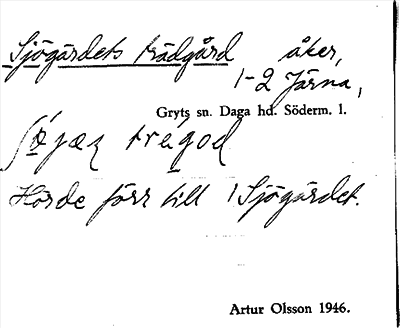 Sjögärdets trädgård åker,
1-2 Järna,
Gryts sn. Daga hd. Söderm. l.
trégod
Hörde förr till 1 Sjögärdet.
Artur Olsson 1946.